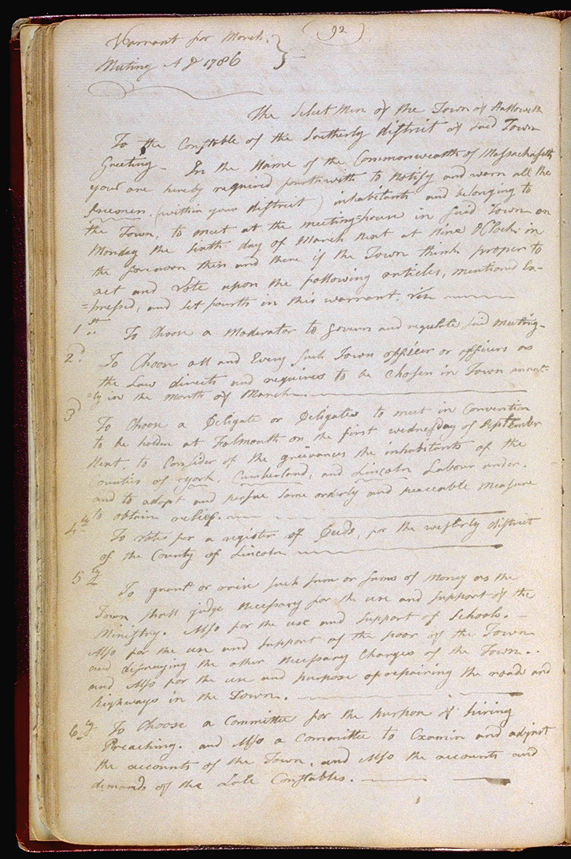 (92)
Warrant for March
Meeting A D 1786
The Select Men of the Town of Hallowell
To the Constable of the Southerly district of said Town
Greeting - In the Name of the Commonwealth of Massachusetts
you are hereby required fourthwith to Notify and warn all the
freemen (within your district) inhabitants and belonging to
the Town, to meet at the meeting-house in said Town on
Monday the sixth day of March Next at Nine OClock in
the forenoon then and there if the Town think proper to
act and Vote upon the following articles, mentioned Ex-
=pressed, and set fourth in this warrant. Viz
1st To Choose a Moderator to govern and regulate said meeting-
2d To Choose all and Every such Town officer or officers as
the Law directs and requires to be Chosen in Town annual-
ly in the month of March
3 To Choose a Deligate or Deligates to meet in Convention
to be holden at Falmouth on the first wednesday of September
Next, to Consider of the grievances the inhabitants of the
counties of york, Cumberland, and Lincoln Labour under.
and to adopt and pursue some orderly and peaceable measure
to obtain relief.
4th To Vote for a register of Deeds, for the westerly district
of the County of Lincoln
5th To grant or raise such sum or sums of Money as the
Town shall judge Necessary for the use and support of the
Ministry. Also for the use and support of Schools.
Also for the use and support of the poor of the Town
and defraying the other Necessary Charges of the Town.
and Also for the use and purpose of repairing the roads and
highways in the Town.
6th To Choose a Committee for the purpose of hiring
Preaching. and Also a Committee to Examin and adjust
the accounts of the Town. and Also the accounts and
demands of the Late Constables.